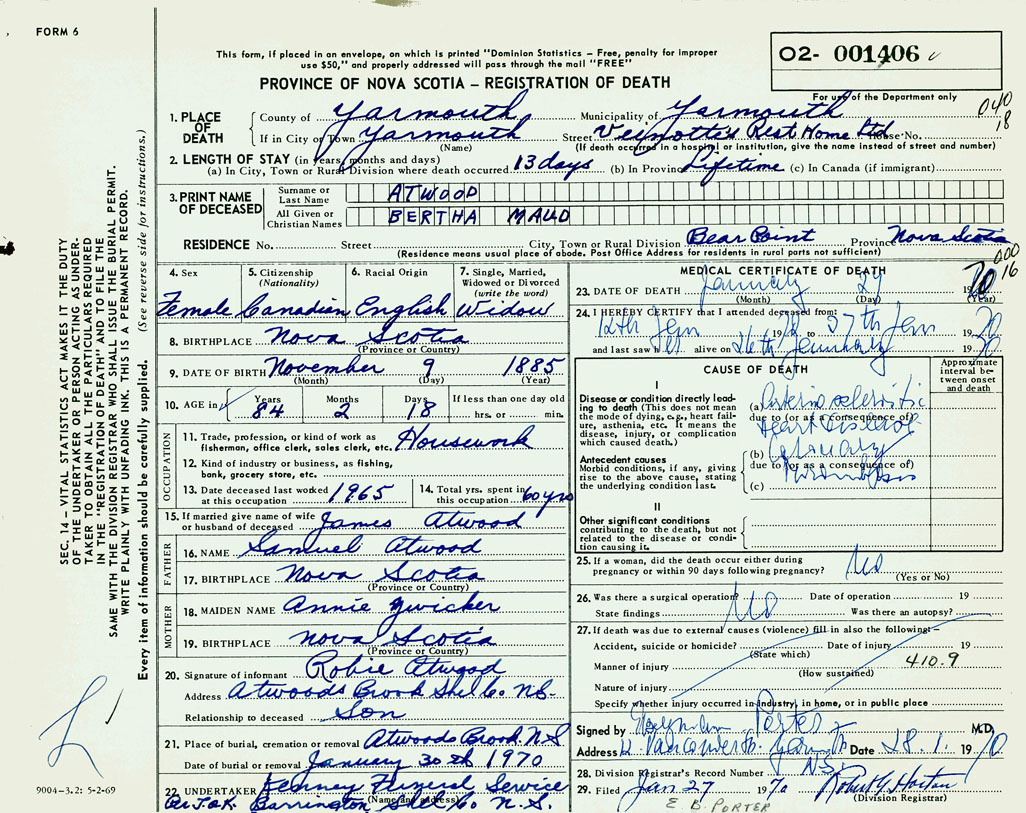 FORM 6
This form, if placed in an envelope, on which is printed "Dominion Statistics – Free, penalty for improper
use $50," and properly addressed will pass through the mail "FREE"
PROVINCE OF NOVA SCOTIA – REGISTRATION OF DEATH
O2- 001406
For use of the Department only
040
18
1. PLACE OF DEATH
County of Yarmouth Municipality of Yarmouth
If in City or Town Yarmouth Street Veinotte's Rest Home Ltd. House No.
(Name) (If death occurred in a hospital or institution, give the name instead of street and number)
2. LENGTH OF STAY (in years, months and days)
(a) In City, Town or Rural Division where death occurred 13 days (b) In Province Lifetime (c) In Canada (if immigrant)
3. PRINT NAME OF DECEASED
Surname or Last Name ATWOOD
All Given or Christian Names BERTHA MAUD
RESIDENCE No. Street City, Town or Rural Division Bear Point Province Nova Scotia
(Residence means usual place of abode. Post Office Address for residents in rural parts not sufficient)
000
16
4. Sex
Female
5. Citizenship
(Nationality)
Canadian
6. Racial Origin
English
7. Single, Married,
Widowed or Divorced
(write the word)
Widow
8. BIRTHPLACE Nova Scotia
(Province or Country)
9. DATE OF BIRTH November 9 1885
(Month) (Day) (Year)
10. AGE in Years Months Days If less than one day old
84 2 18 hrs. or min.
OCCUPATION
11. Trade, profession, or kind of work as
fisherman, office clerk, sales clerk, etc. Housework
12. Kind of industry or business, as fishing,
bank, grocery store, etc.
13. Date deceased last worked
at this occupation 1965
14. Total yrs. spent in
this occupation 60 yrs
15. If married give name of wife
or husband of deceased James Atwood
FATHER
16. NAME Samuel Atwood
17. BIRTHPLACE Nova Scotia
(Province or Country)
MOTHER
18. MAIDEN NAME Annie Zwicker
19. BIRTHPLACE Nova Scotia
(Province or Country)
20. Signature of informant Robie Atwood
Address Atwoods Brook Shel Co. NS.
Relationship to deceased Son
21. Place of burial, cremation or removal Atwoods Brook N.S
Date of burial or removal January 30th 1970
22. UNDERTAKER Kenney Funeral Service
(Name and address)
Barrington Shel Co. N.S.
MEDICAL CERTIFICATE OF DEATH
23. DATE OF DEATH January 27 1970
(Month) (Day) (Year)
24. I HEREBY CERTIFY that I attended deceased from:
12th Jan 19 to 27th Jan 1970
and last saw h er alive on 26th January 1970
CAUSE OF DEATH
Approximate
interval be-
tween onset
and death
I
Disease or condition directly lead-
ing to death (This does not mean
the mode of dying, e.g., heart fail-
ure, asthenia, etc. It means the
disease, injury, or complication
which caused death.)
(a) Arteriosclerotic
due to (or as a consequence of)
Heart Disease
Antecedent causes
Morbid conditions, if any, giving
rise to the above cause, stating
the underlying condition last.
(b) Coronary
due to (or as a consequence of)
Thrombosis
(c)
II
Other significant conditions
contributing to the death, but not
related to the disease or condi-
tion causing it.
25. If a woman, did the death occur either during
pregnancy or within 90 days following pregnancy? No
(Yes or No)
26. Was there a surgical operation? No Date of operation 19
State findings Was there an autopsy?
27. If death was due to external causes (violence) fill in also the following:–
Accident, suicide or homicide? Date of injury 19
(State which)
Manner of injury 410.9
(How sustained)
Nature of injury
Specify whether injury occurred in industry, in home, or in public place
Signed by Porter M.D.
Address Vancouver St. Yarmouth Date 28.1. 1970
N.S.
28. Division Registrar's Record Number
29. Filed Jan 27 1970 Robert G. Horton
(Division Registrar)
E. B. PORTER
SEC. 14 – VITAL STATISTICS ACT MAKES IT THE DUTY
OF THE UNDERTAKER OR PERSON ACTING AS UNDER-
TAKER TO OBTAIN ALL THE PARTICULARS REQUIRED
IN THE "REGISTRATION OF DEATH" AND TO FILE THE
SAME WITH THE DIVISION REGISTRAR WHO SHALL ISSUE THE BURIAL PERMIT.
WRITE PLAINLY WITH UNFADING INK. THIS IS A PERMANENT RECORD.
Every item of information should be carefully supplied. (See reverse side for instructions.)
9004-3.2: 5-2-69